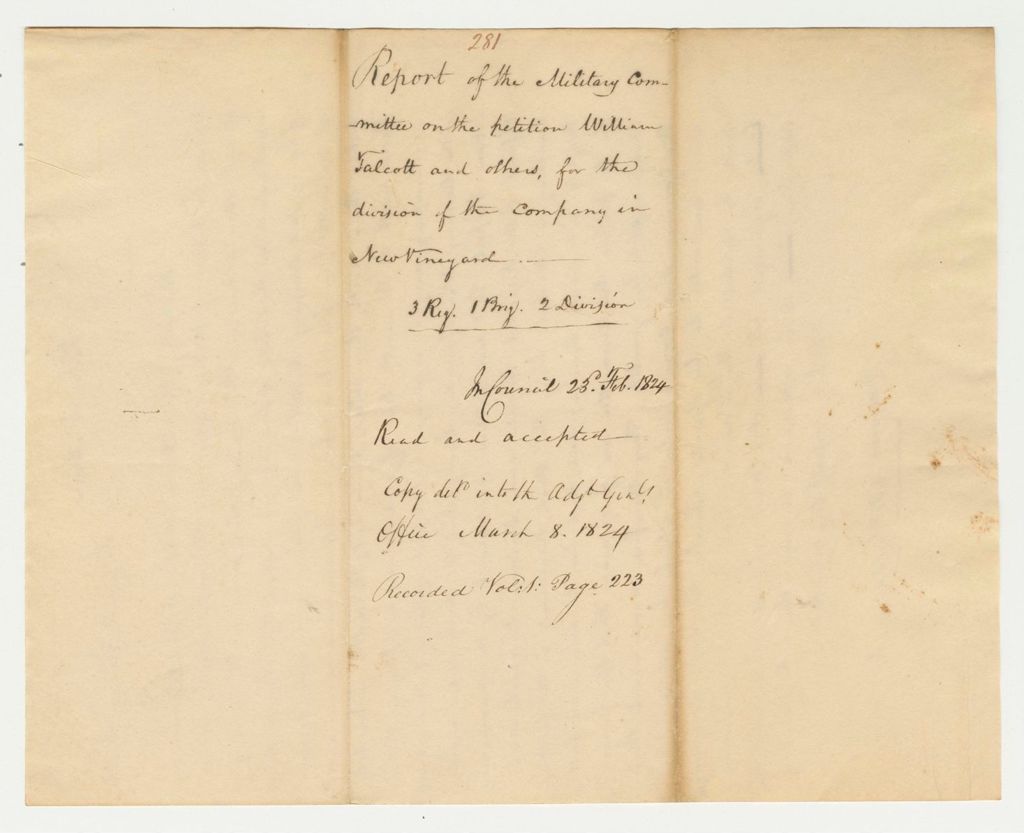 281
Report of the Military Com-
-mittee on the petition William
Talcott and others, for the
division of the Company in
New Vineyard. —
3 Reg. 1 Brig. 2 Division
In Council 25. Feb. 1824
Read and accepted
Copy deld into the Adjt Genls!
Office March 8. 1824
Recorded Vol: 1: Page 223